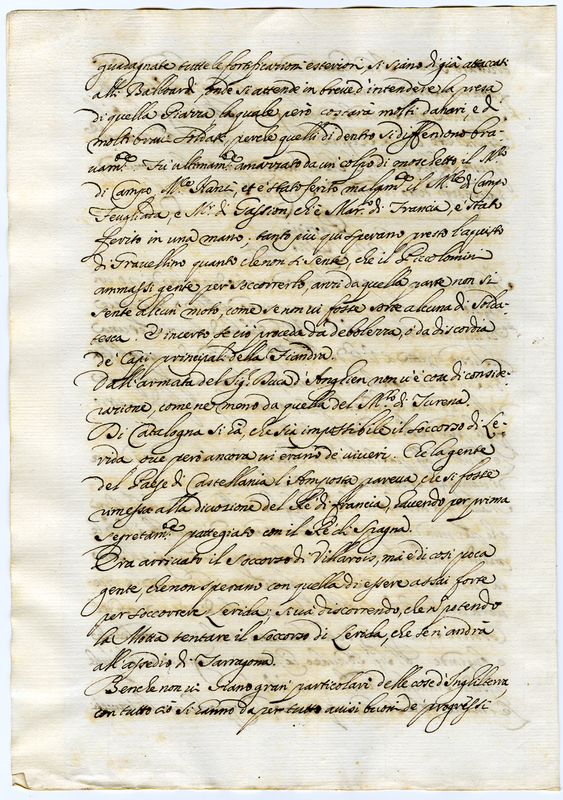 guadagnate tutte le fortificazioni esteriori si siano di già attaccati
alli Balloardi, onde si attende in breve d'intendere la presa
di quella Piazza la quale però costarà molti danari, e di
molti bravi soldati, perche quelli di dentro si diffendono bra-
vam.te. Fù ultimam.te amazzato da un colpo di moschetto il M.ro
di Campo et è stato ferito malam.te il M.ro di Campo
e Mr. di Gassion, ch'è Mar.lo di Francia, è stato
ferito in una mano, tanto più qui sperano presto l'aquisto
di Gravellino quanto che non si sente, che il Piccolomini
ammassi gente per soccorrerlo, anzi da quella parte non si
sente alcun moto, come se non vi fosse sorte alcuna di solda-
tesca. È incerto se ciò proceda da debolezza, ò da discordia
de' Capi principali della Fiandra.
Dall'armata del Sig.r Duca d'Anghien non v'è cosa di conside-
razione, come ne meno da quella del M.lo di Turena.
Di Catalogna si dà, che sia impossibile il soccorso di Le-
rida ove però ancora vi erano de viveri. Che la gente
del Paese di Castellania d'Amposta pareva, che si fosse
rimessa alla divozione del Rè di Francia, havendo per prima
segretam.te patteggiato con il Rè di Spagna.
Era arrivato il soccorso di Villarois, mà è di così poca
gente, che non sperano con quella di essere assai forte
per soccorrere Lerida. Si và discorrendo, che n. potendo
la Motta tentare il soccorso di Lerida, che se n'andrà
all'assedio di Tarragona.
Benche non vi siano gran particolari delle cose d'Inghilterra,
con tutto ciò si hanno da per tutto avisi buoni de progressi